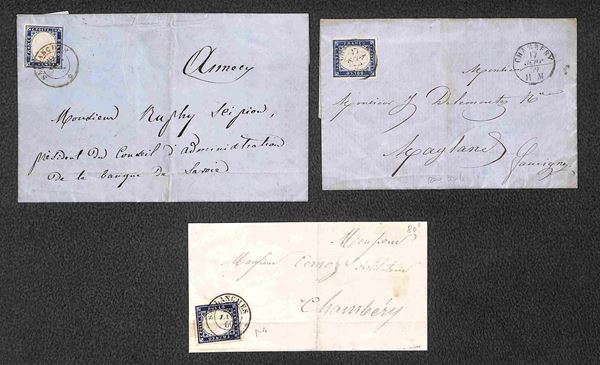 Annecy
Monsieur Ruphy Scipion,
président du Conseil d'administration
de la banque de Savoie
CHAMBERY
17
SEPT
11 M
Monsieur
Monsieur J Delemontex
Magland
Faucigny
80
Monsieur
Monsieur Comoz instituteur
Chambéry
SALLANCHES